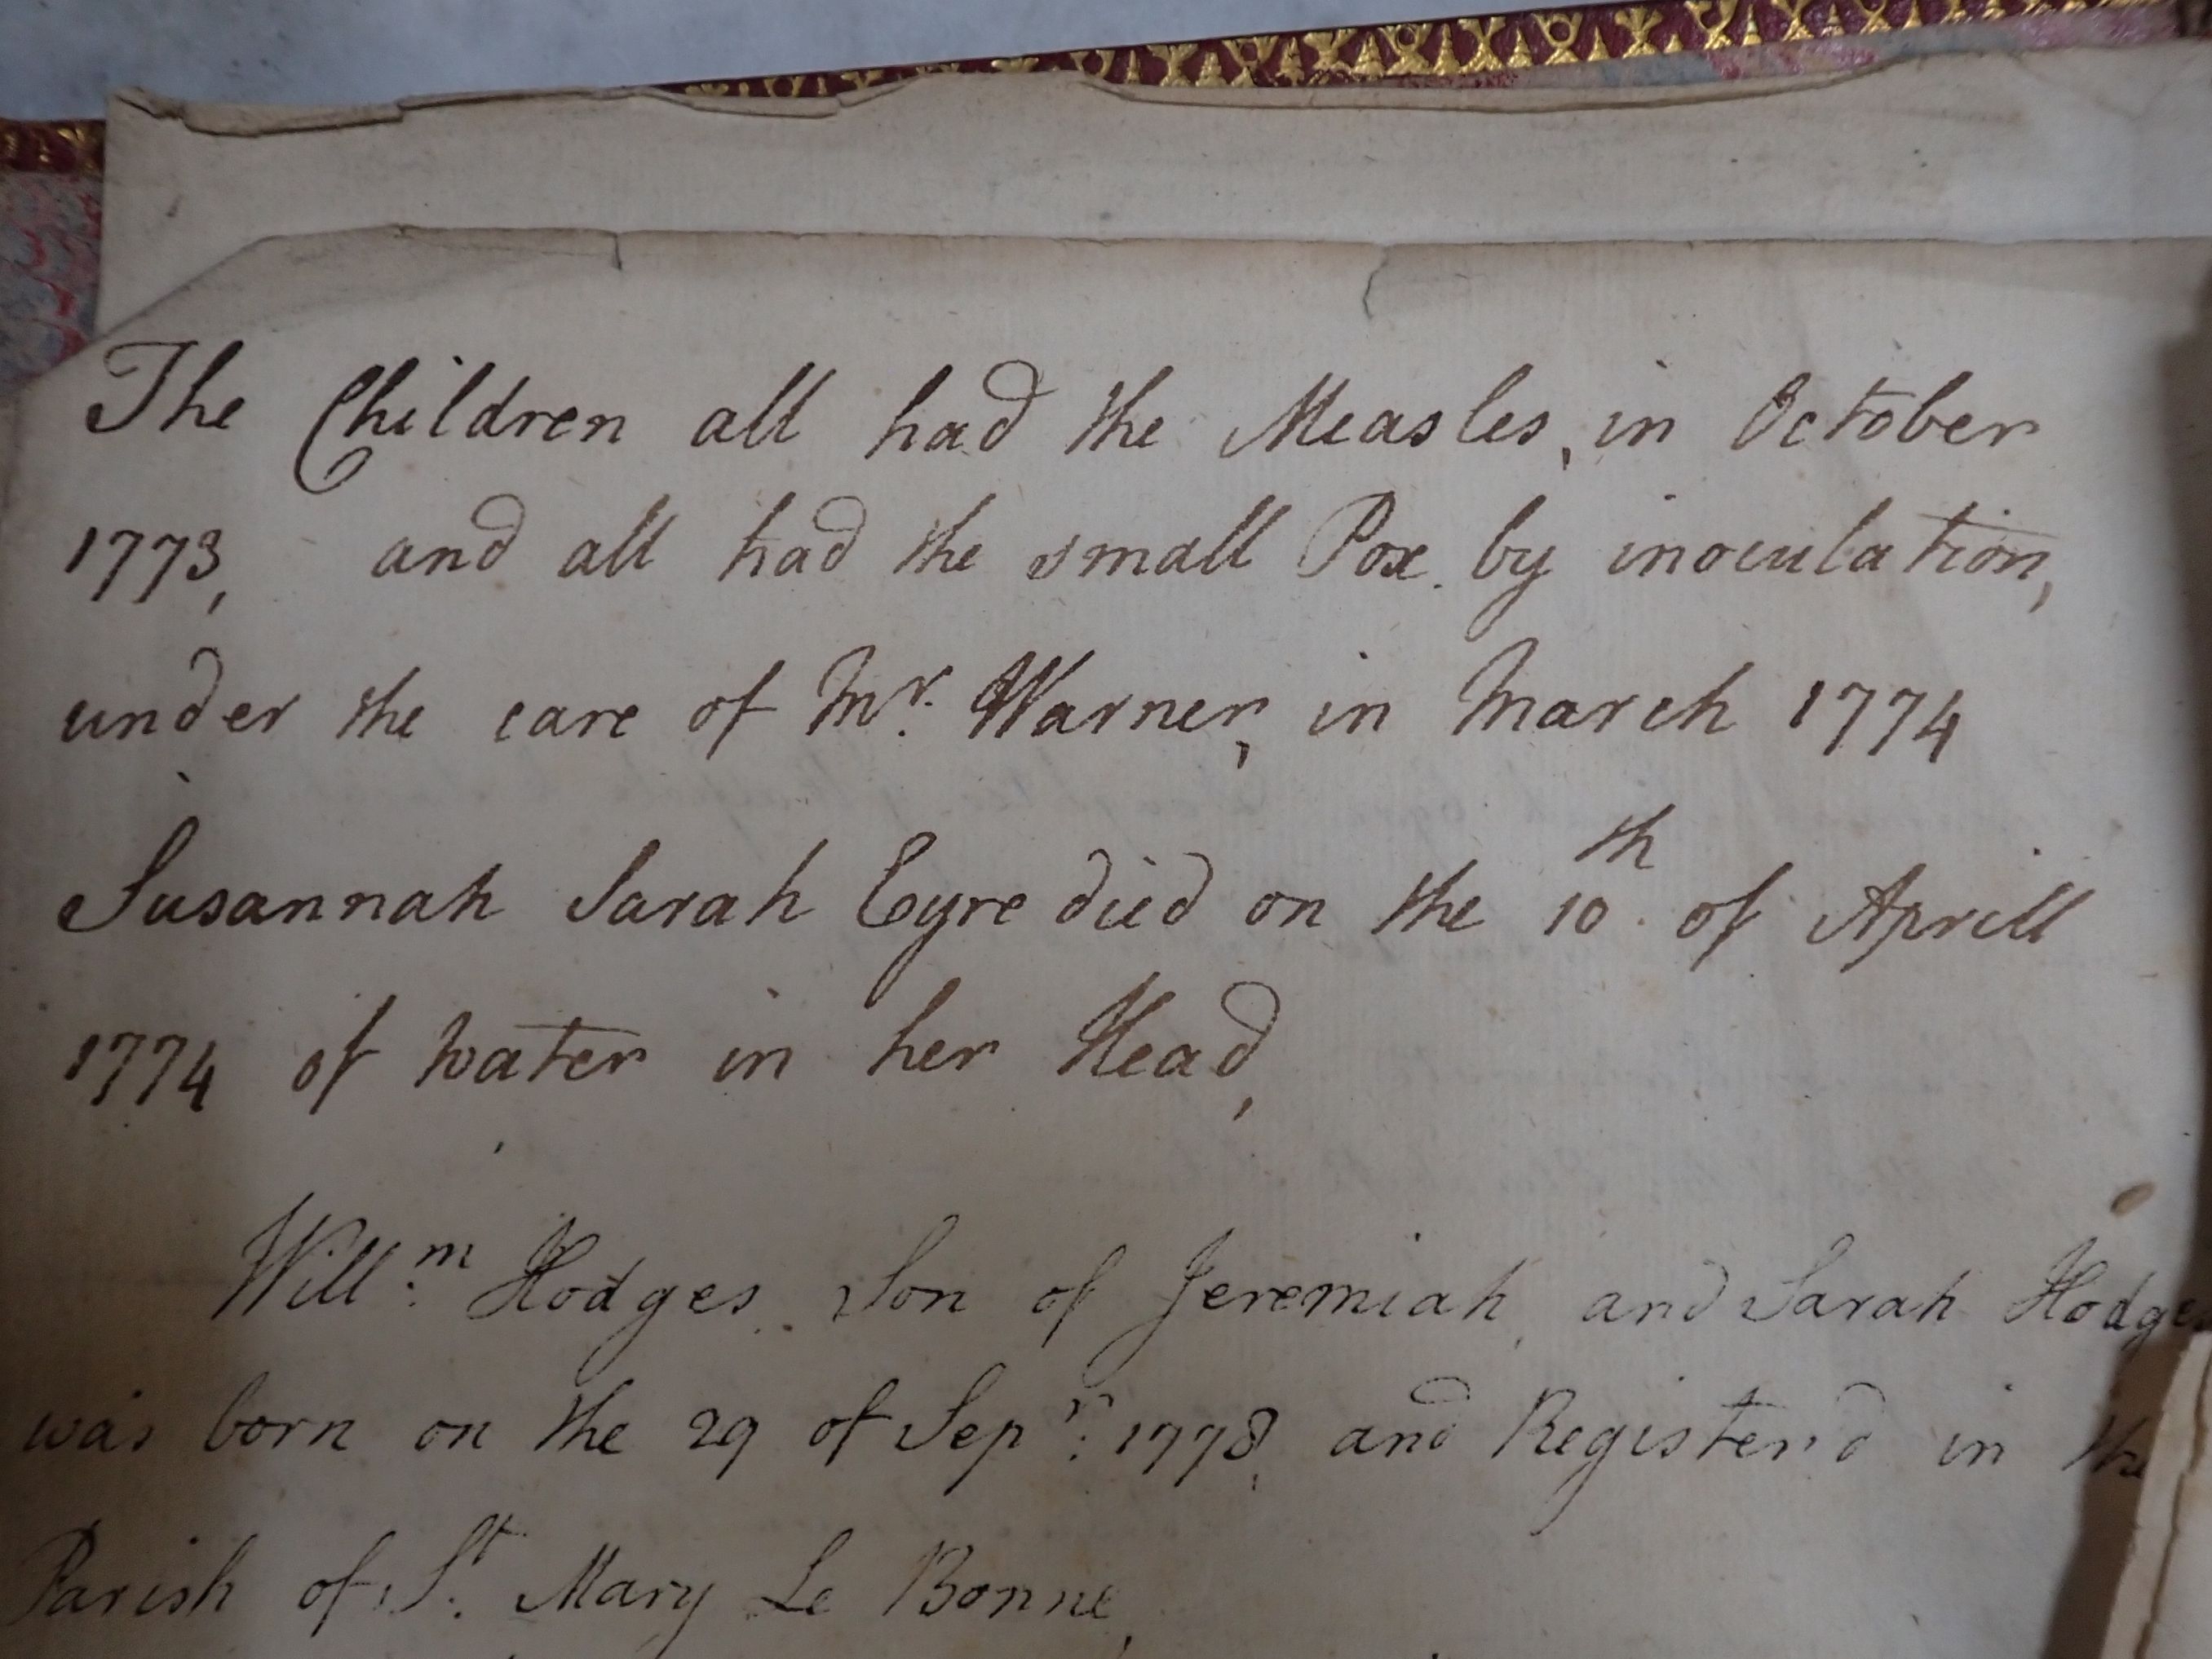 The Children all had the Measles, in October
1773, and all had the small Pox by inoculation,
under the care of Mr. Warner, in March 1774
Susannah Sarah Eyre died on the 10th of Aprill
1774 of water in her Head,
Willm Hodges Son of Jeremiah, and Sarah Hodges
was born on the 29 of Sepr: 1778, and Register'd in the
Parish of St. Mary Le Bonne,